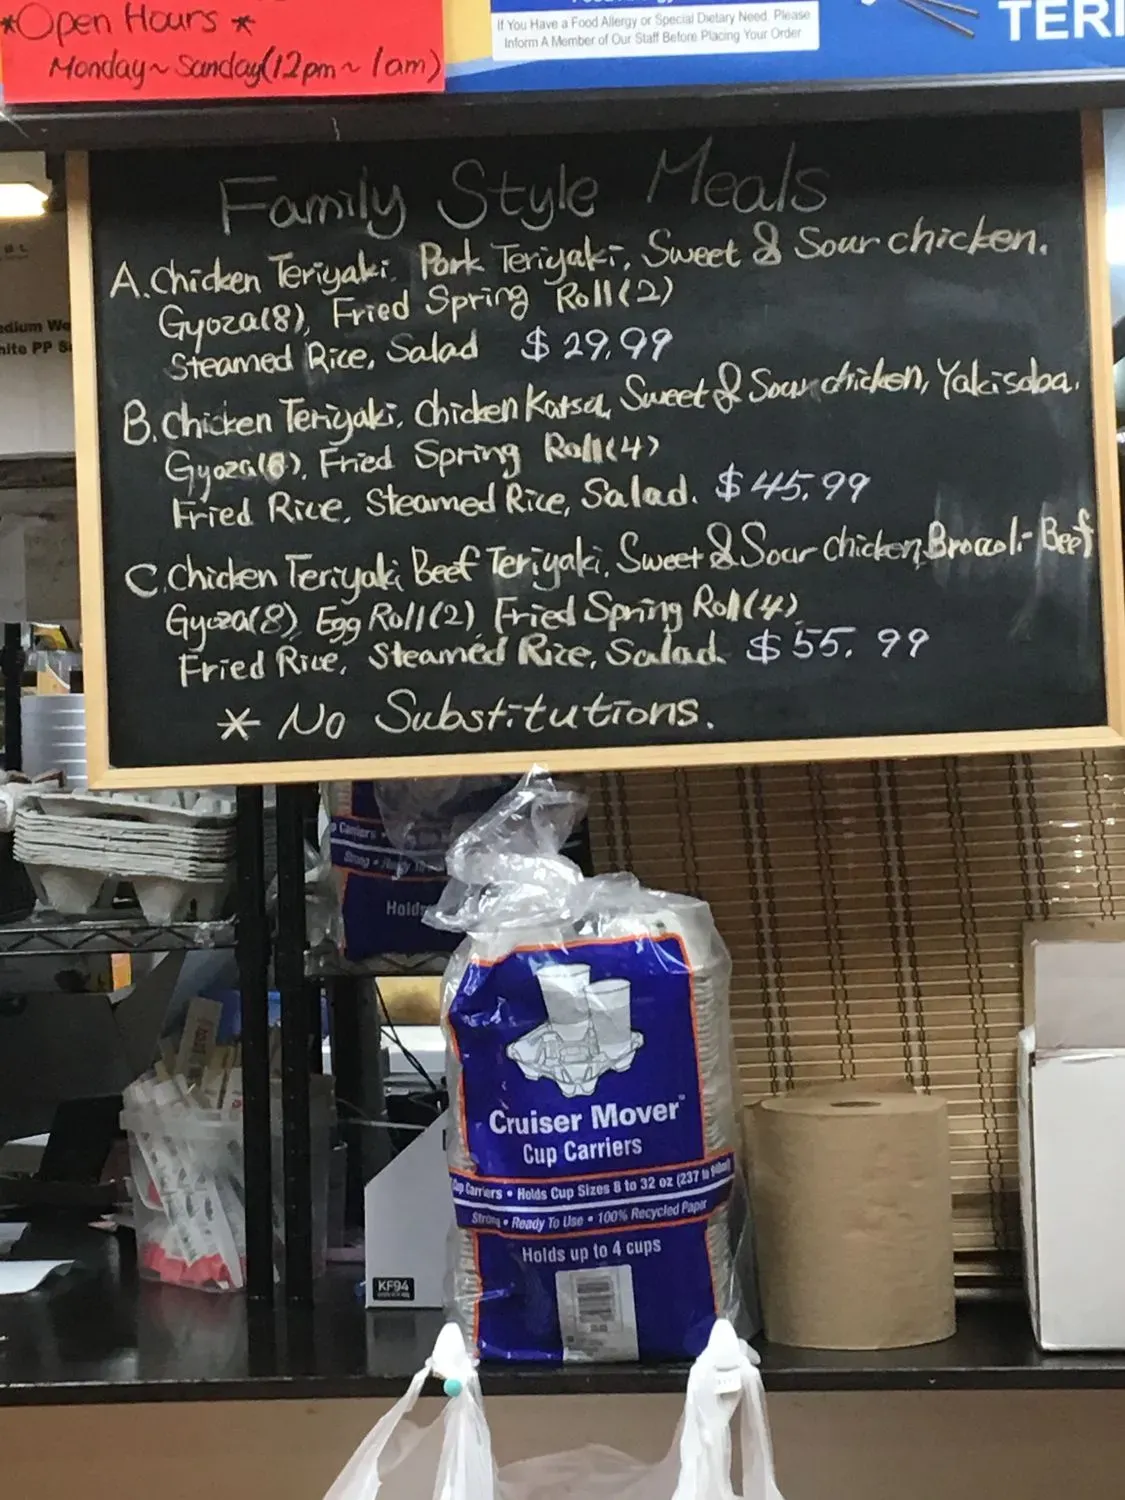 *Open Hours*
Monday~Sunday(12pm~1am)
If You Have a Food Allergy or Special Dietary Need, Please
Inform A Member of Our Staff Before Placing Your Order
TERI
Family Style Meals
A. Chicken Teriyaki. Pork Teriyaki, Sweet & Sour chicken.
Gyoza(8), Fried Spring Roll(2)
Steamed Rice, Salad $29.99
B. Chicken Teriyaki, Chicken Katsu, Sweet & Sour chicken, Yakisoba.
Gyoza(8), Fried Spring Roll(4)
Fried Rice, Steamed Rice, Salad. $45.99
C. Chicken Teriyaki, Beef Teriyaki, Sweet & Sour chicken, Broccoli-Beef
Gyoza(8), Egg Roll(2) Fried Spring Roll(4),
Fried Rice, Steamed Rice, Salad. $55.99
* No Substitutions.
Carriers
Strong • Ready To
Holds
Cruiser Mover™
Cup Carriers
Cup Carriers • Holds Cup Sizes 8 to 32 oz (237 to
Strong • Ready To Use • 100% Recycled Paper
Holds up to 4 cups
KF94